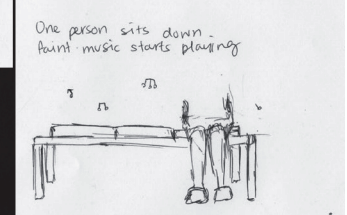 One person sits down.
Faint music starts playing